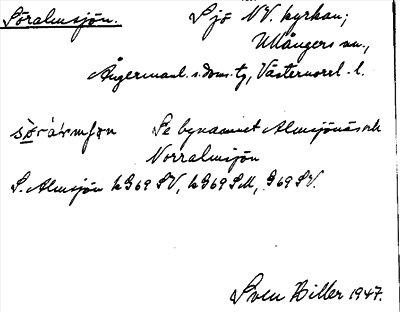 Söralmsjön. Sjö NV. kyrkan;
Ullångers sn.,
Ångermanl. s. doms. tg, Västernorrl. l.
Se bynamnet Almsjönäs och
Norralmsjön
S. Almsjön k G69 SV, k G69 SM, G69 SV.
Sven Hiller 1947.